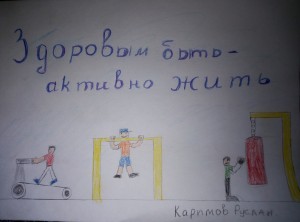 Здоровым быть -
активно жить
Каримов Руслан